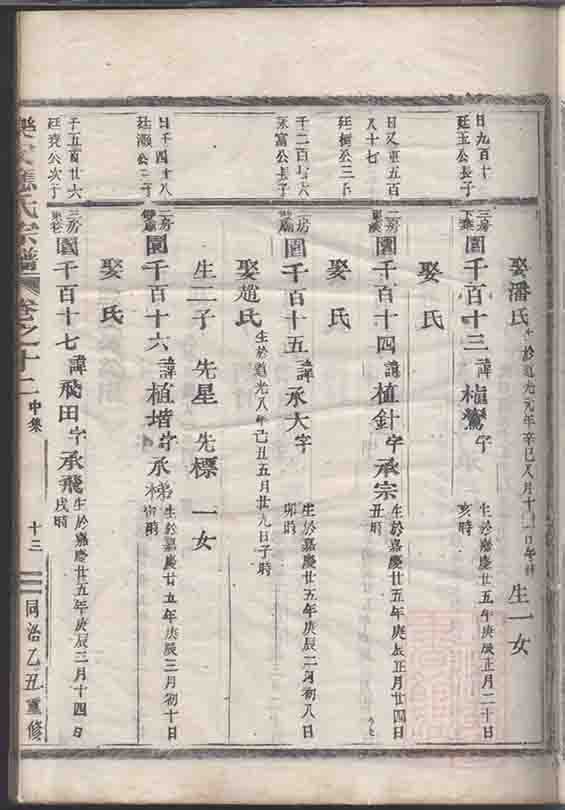 娶潘氏 生於道光元年辛巳八月十一日午時 生一女
日九百十
廷玉公長子
三房
圜千百十三 諱植鶯字 生於嘉慶廿五年庚辰正月二十日
亥時
娶 氏
日又五百
八十七
廷樹公三子
二房
圜千百十四 諱植針字承宗 生於嘉慶廿五年庚辰正月廿四日
丑時
娶 氏
千二百七六
永富公長子
二房
圜千百十五 諱承大字 生於嘉慶廿五年庚辰二月初八日
卯時
娶趙氏 生於道光八年己丑五月廿九日子時
生二子 先星 先標 一女
日千四十八
廷灝公三子
二房
圜千百十六 諱植堦字承梯 生於嘉慶廿五年庚辰三月初十日
寅時
娶 氏
千五百廿六
廷堯公次子
三房
圜千百十七 諱飛田字承飛 生於嘉慶廿五年庚辰三月十四日
戌時
氏宗譜 卷之十二 中集 十三 同治乙丑重修